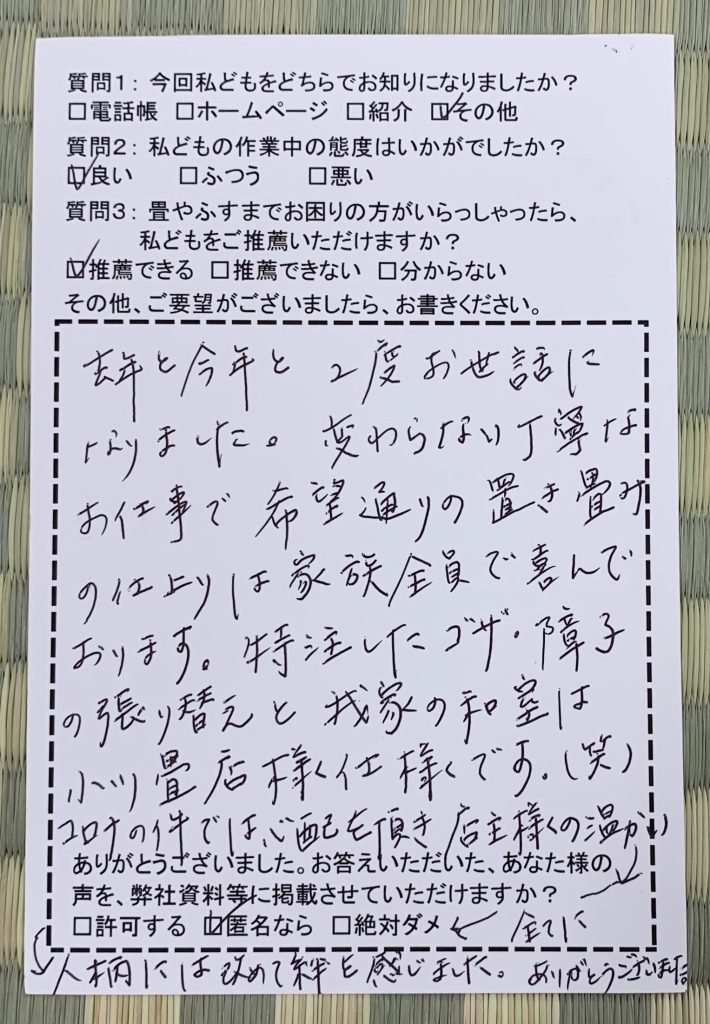 質問1: 今回私どもをどちらでお知りになりましたか?
□電話帳 □ホームページ □紹介 ☑その他
質問2: 私どもの作業中の態度はいかがでしたか?
☑良い □ふつう □悪い
質問3: 畳やふすまでお困りの方がいらっしゃったら、
私どもをご推薦いただけますか?
☑推薦できる □推薦できない □分からない
その他、ご要望がございましたら、お書きください。
去年と今年と 2度お世話に
なりました。変わらない丁寧な
お仕事で 希望通りの置き畳み
の仕上りは家族全員で喜んで
おります。特注したゴザ・障子
の張り替えと 我家の和室は
小川畳店様く仕様くです。(笑)
コロナの件では心配を頂き 店主様くの温かい
ありがとうございました。お答えいただいた、あなた様の
声を、弊社資料等に掲載させていただけますか?
□許可する ☑匿名なら □絶対ダメ ← 全てに
人柄には改めて絆を感じました。ありがとうございました。